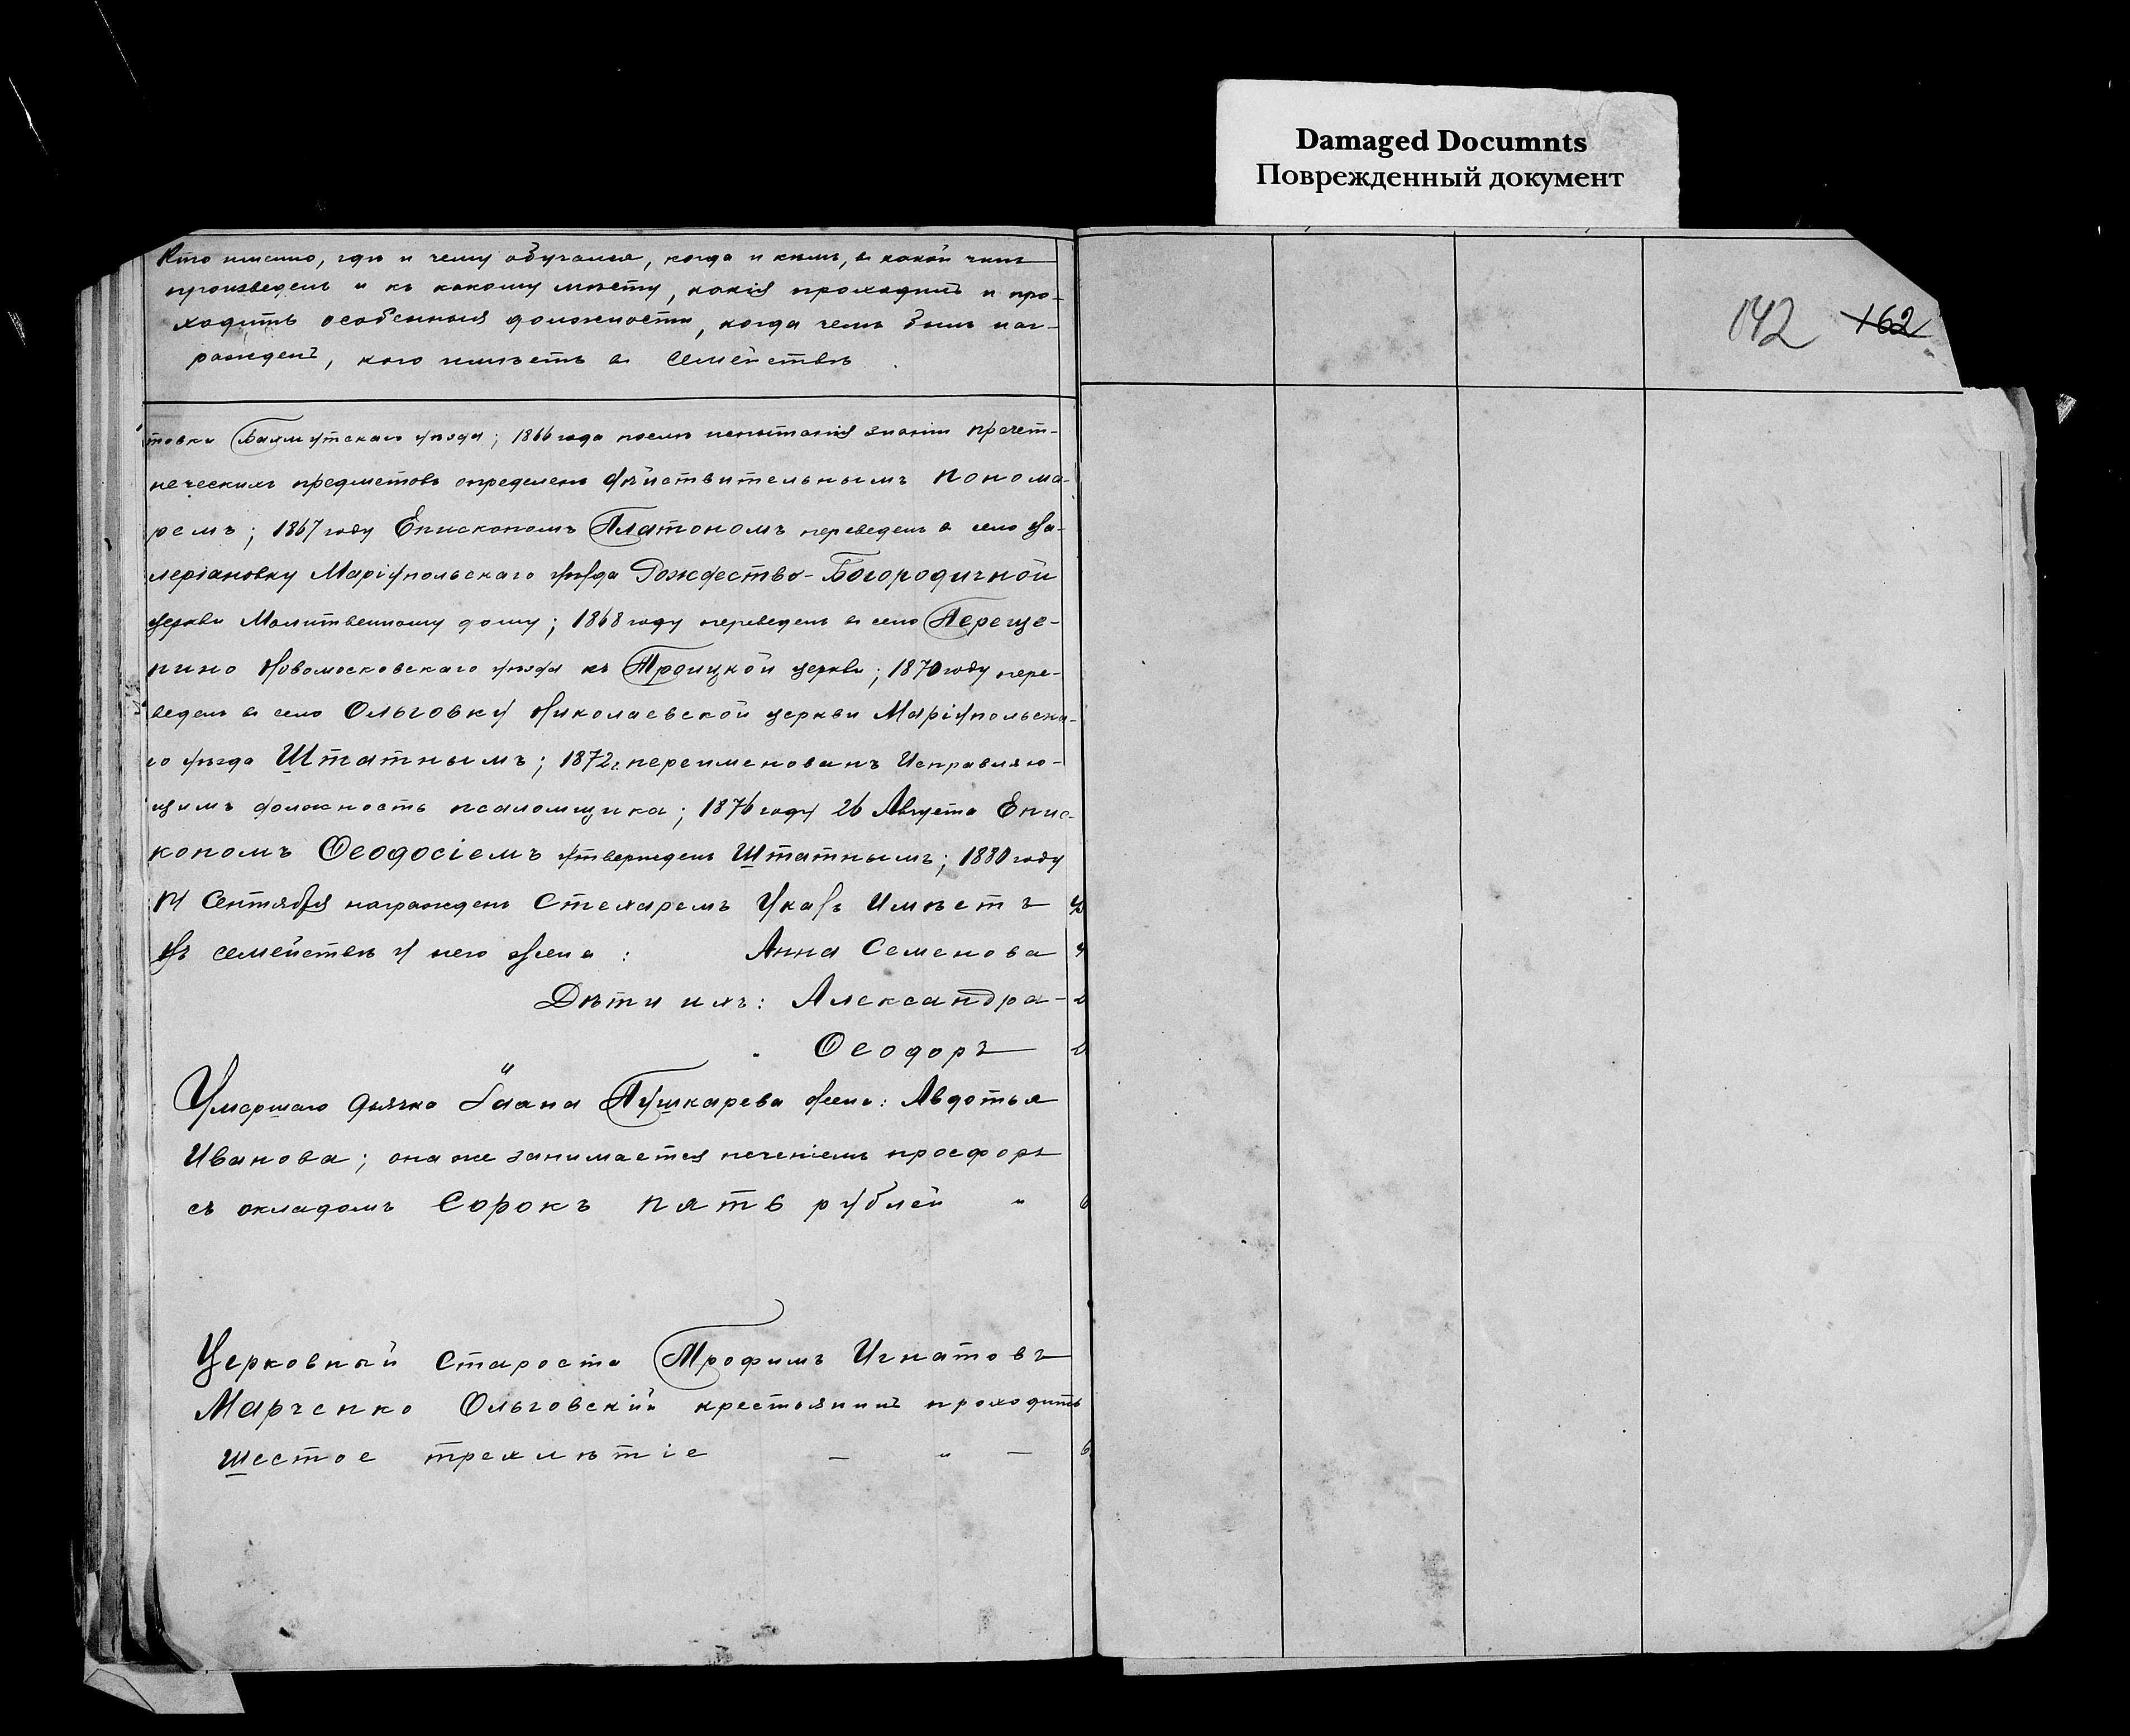 Damaged Documnts
Поврежденный документ
142 162
Кто именно, гдѣ и чему обучался, когда и кѣмъ, в какой чинъ
произведенъ и къ какому мѣсту, какія проходилъ и про-
ходитъ особенныя должности, когда чемъ былъ наг-
ражденъ, кого имѣетъ в семействѣ
товки Бахмутскаго уѣзда; 1866 года послѣ испытанія знаніи причет-
неческихъ предметовъ определенъ дѣйствительнымъ понома-
ремъ; 1867 году Епископомъ Платономъ переведенъ в село Ва-
леріановку Маріупольскаго уѣзда Рождество-Богородичной
церкви Молитвенному дому; 1868 году переведенъ в село Переще-
пино Новомосковскаго уѣзда къ Троицкой церкви; 1870 году пере-
веденъ в село Ольговку Николаевской церкви Маріупольска-
го уѣзда Штатнымъ; 1872 г. переименованъ Исправляю-
щимъ должность псаломщика; 1876 году 26 Августа Епис-
копомъ Ѳеодосіемъ утвержденъ Штатнымъ; 1880 году
14 Сентября награжденъ Стехаремъ Указъ Имѣетъ
Въ семействѣ у него жена: Анна Семенова
Дѣти ихъ: Александра
Ѳеодоръ
Умершаго дьячка Іоана Пушкарева жена: Авдотья
Иванова; она же занимается печеніемъ просфоръ
съ окладомъ Сорокъ пять рублей "
Церковный Староста Трофимъ Игнатовъ
Марченко Ольговскій крестьянинъ проходитъ
шестое трехлѣтіе — " —